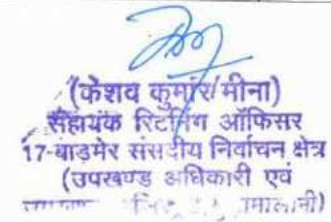 (केशव कुमार मीना)
सहायक रिटर्निंग ऑफिसर
17-बाड़मेर संसदीय निर्वाचन क्षेत्र
(उपखण्ड अधिकारी एवं
मालानी)